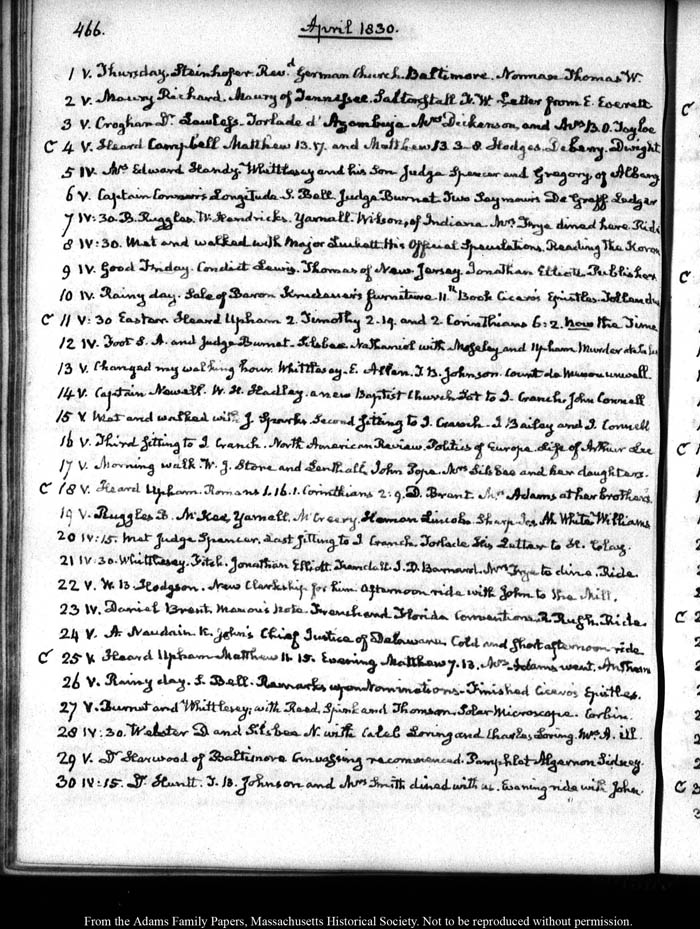 466. April 1830.
1 V. Thursday. Steinhofer Rev.d German Church. Baltimore. Norman Thomas W.
2 V. Maury Richard. Maury of Tennessee. Saltonstall N. W. Letter from E. Everett
3 V. Croghan Dr. Lawless. Torlade d'Azambuja Mrs Dickenson, and Mrs B. O. Tayloe
C 4 V. Heard Campbell Matthew 13.57. and Matthew 13. 3-8. Hodges. DeBerry. Dwight
5 IV. Mrs Edward Handy. Whittlesey and his Son Judge Spencer and Gregory, of Albany
6 V. Captain Conner's Longitude S. Bell. Judge Burnet. Two Seymours De Graff Ledger
7 IV:30. B. Ruggles. W. Hendricks. Yarnall. Wilson, of Indiana. Mrs Frye dined here. Ride
8 IV:30. Met and walked with Major Luckett. His Official Speculations. Reading the Koran
9 IV. Good Friday. Condict Lewis. Thomas of New Jersey. Jonathan Elliott. Publisher
10 IV. Rainy day. Sale of Baron Krudener's furniture 11th Book Cicero's Epistles.
C 11 V:30 Eastern Heard Upham 2. Timothy 2.19. and 2 Corinthians 6:2. now the Time
12 IV. Foot S. A. and Judge Burnet. Silsbee Nathaniel with Moseley and Upham Murder
13 V. Changed my walking hour. Whittlesey. E. Allen. J. B. Johnson. Count de
14 V. Captain Newell. W. H. Hadley. a new Baptist Church. Sat to J. Cranch. John Connell
15 V. Met and walked with J. Sparks. Second sitting to J. Cranch. J Bailey and J. Connell
16 V. Third sitting to J Cranch. North American Review. Politics of Europe. Life of Arthur Lee
17 V. Morning walk. W. J. Stone and Lenthall, John Pope. Mrs Silsbee and her daughters.
C 18 V. Heard Upham. Romans 1.16. 1. Corinthians 2:9. D. Brent. Mrs Adams at her brother's
19 V. Ruggles B. McKee, Yarnall. McCreery. Heman Lincoln. Sharp Jos. M. White. Williams
20 IV:15. Met Judge Spencer. Last sitting to J Cranch. Torlade His Letter to H. Clay.
21 IV:30. Whittlesey. Fitch. Jonathan Elliott. Trundall J. D. Barnard. Mrs Frye to dine. Ride.
22 V. W. B. Hodgson. New Clerkship for him. Afternoon ride with John to the Mill.
23 IV. Daniel Brent. Menou's note. French and Florida Conventions. R. Rush. Ride.
24 V. A. Naudain K. John's Chief Justice of Delaware. Cold and short afternoon ride
C 25 V. Heard Upham Matthew 11. 15. Evening Matthew 7.13. Mrs Adams went. Anthem
26 V. Rainy day. S. Bell. Remarks upon Nominations. Finished Cicero's Epistles.
27 V. Burnet and Whittlesey; with Reed, Spink and Thomson. Solar Microscope. Corbin.
28 IV:30. Webster D and Silsbee N. with Caleb Loring and Charles Loring. Mrs A. ill.
29 V. Dr Harwood of Baltimore Canvassing recommenced. Pamphlet Algernon Sidney.
30 IV:15. Dr Huntt. J. B. Johnson and Mrs Smith dined with us. Evening ride with John.
From the Adams Family Papers, Massachusetts Historical Society. Not to be reproduced without permission.